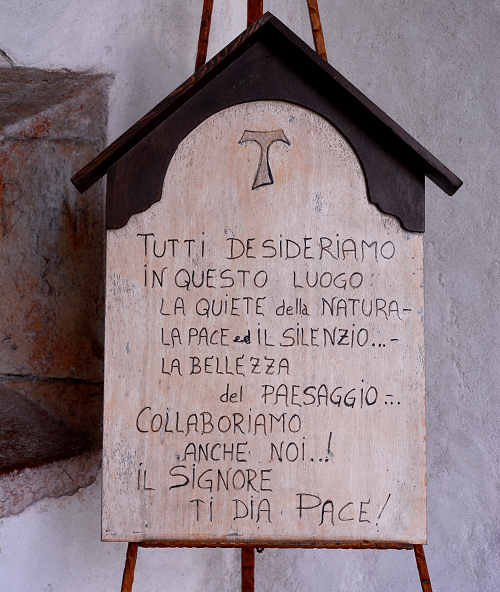 TUTTI DESIDERIAMO
IN QUESTO LUOGO:
LA QUIETE della NATURA-
LA PACE ed IL SILENZIO...-
LA BELLEZZA
del PAESAGGIO-...
COLLABORIAMO
ANCHE NOI...!
IL SIGNORE
TI DIA PACE!